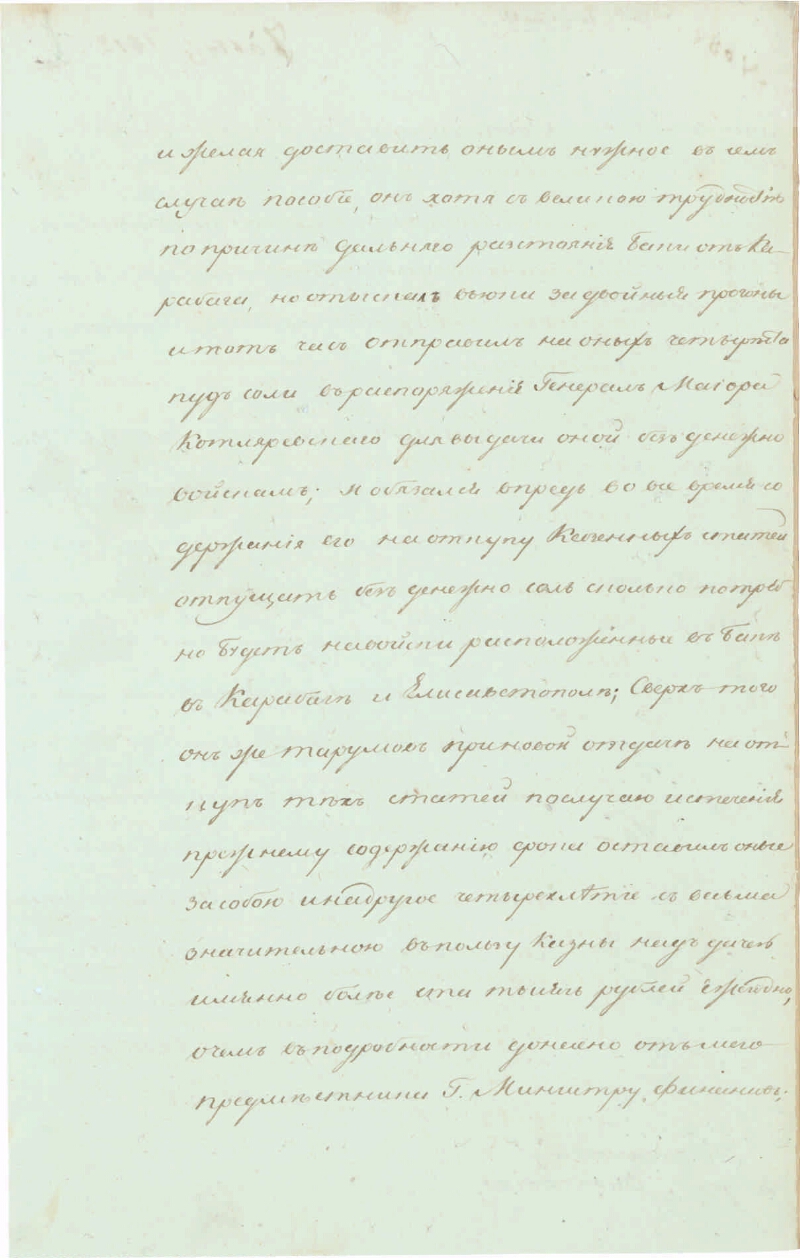 и желая доставить онымъ нужное въ семъ
случаѣ пособіе, онъ хотя съ великою трудностію
по причинѣ дальняго разстоянія Баки отъ Ка-
рабага, но отыскалъ вьюки за двойныя прогоны
и тотъ часъ отправилъ на оныхъ четыреста
пудъ соли въ распоряженіе Генералъ Маіора
Котляревскаго для выдачи оной безъ денежно
войскамъ; и обязался впредь во все время со
держанія его на откупу Казенныхъ статей
отпущать безъ денежно соль сколько потреб
но будетъ на войски расположенные въ Бакѣ
въ Карабагѣ и Елисаветополѣ; Сверхъ того
онъ же Тарумовъ при новой отдачѣ на от-
купъ тѣхъ статей по случаю истеченія
прежнему содержанію срока оставилъ оные
за собою и на другое четырехлѣтіе съ весьма
значительною въ пользу Казны надъдачею
имянно болѣе ста тысячь рублей ежегодно,
о чемъ въ подробности донесено отъ моего
предмѣстника Г. Министру Финансовъ;